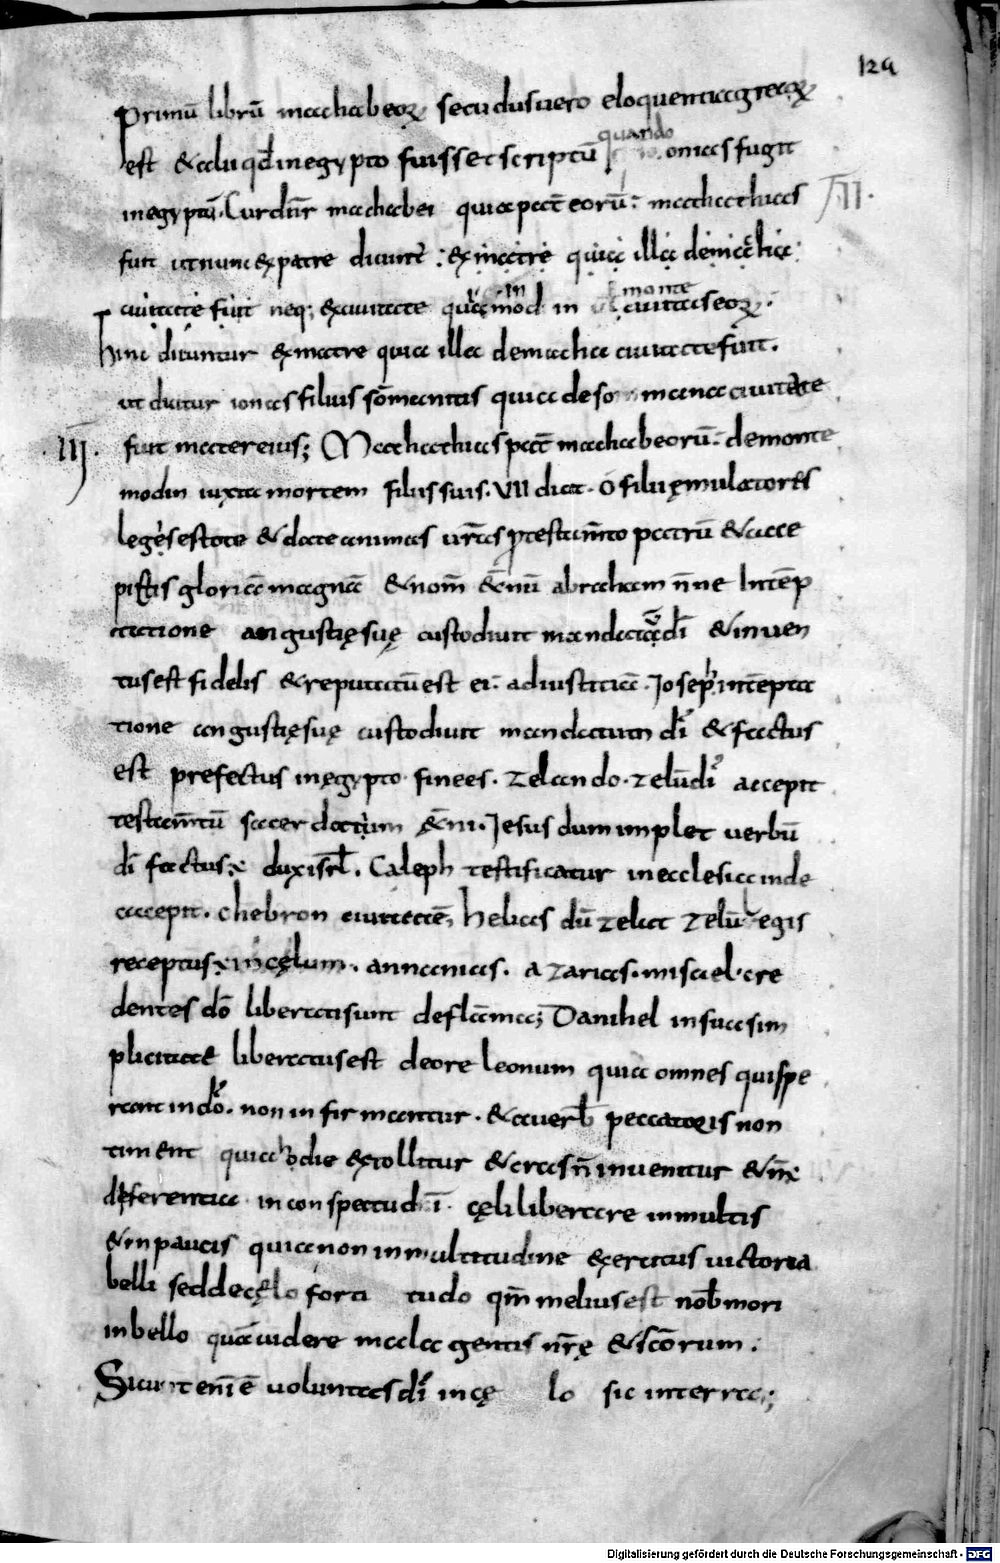 124
primū librū machabeoꝝ secūdus uero eloquentia greaꝝ
est & adu qđ in egypto fuisset scriptū quando onias fugit
in egyptū. Cur dn̄r machabei quia pat̄ eorū. mathathias
II.
fuit ut nunc ex patre dicunt̄ : ex matre quia illa de machia
ciuitate fuit neq; ex ciuitate quia in mod in monte ciuitas eoꝝ.
hinc dicuntur ex matre quia illa de macha ciuitate fuit.
ut dicitur ionas filius somanitis quia de so manna ciuitate
.III. fuit mater eius; Mathathias pat̄ machabeorū. de monte
modin iuxta mortem filiis suis. VII dicit. O filii ęmulatores
leges estote & date animas ur̄as ꝑ testam̄to patrū & acce
pistis gloriā magnā & nom̄ & ē̄nū abraham n̄ne In tēp
tatione angustię suę custodiuit mandata dī & inuen
tus est fidelis & reputatū est ei. ad iustitiā. Ioseph in tēpta
tione angustię suę custodiuit mandatum dī & factus
est prefectus in ęgypto. finees. zelando. zelū dī accepit
testam̄tū sacerdotum ę̄ni. Iesus dum implet uerbū
dī factus ē dux isrl̄. Caleph testificatur in ecclesia inde
accepit. chebron ciuitatē, helias dū zelat zelū legis
receptus ē in cęlum. annanias. azarias. misael. cre
dentes dō liberati sunt de flāma; Danihel in sua sim
plicitate liberatus est de ore leonum quia omnes qui spe
rant in dō. non infirmantur. & a uerb̄ peccatoris non
timent quia hodie extollitur & cras n̄ inuenitur & n̄ ē
deferentia in conspectu dī cęli liberare in multis
& in paucis quia non in multitudine exercitus uictoria
belli sed de cęlo forti tudo qm̄ melius est nob̄ mori
in bello quā uidere mala gentis nr̄ę & scōrum.
Sicut enī ē uoluntas dī in cę lo sic in terra;
Digitalisierung gefördert durch die Deutsche Forschungsgemeinschaft - DFG